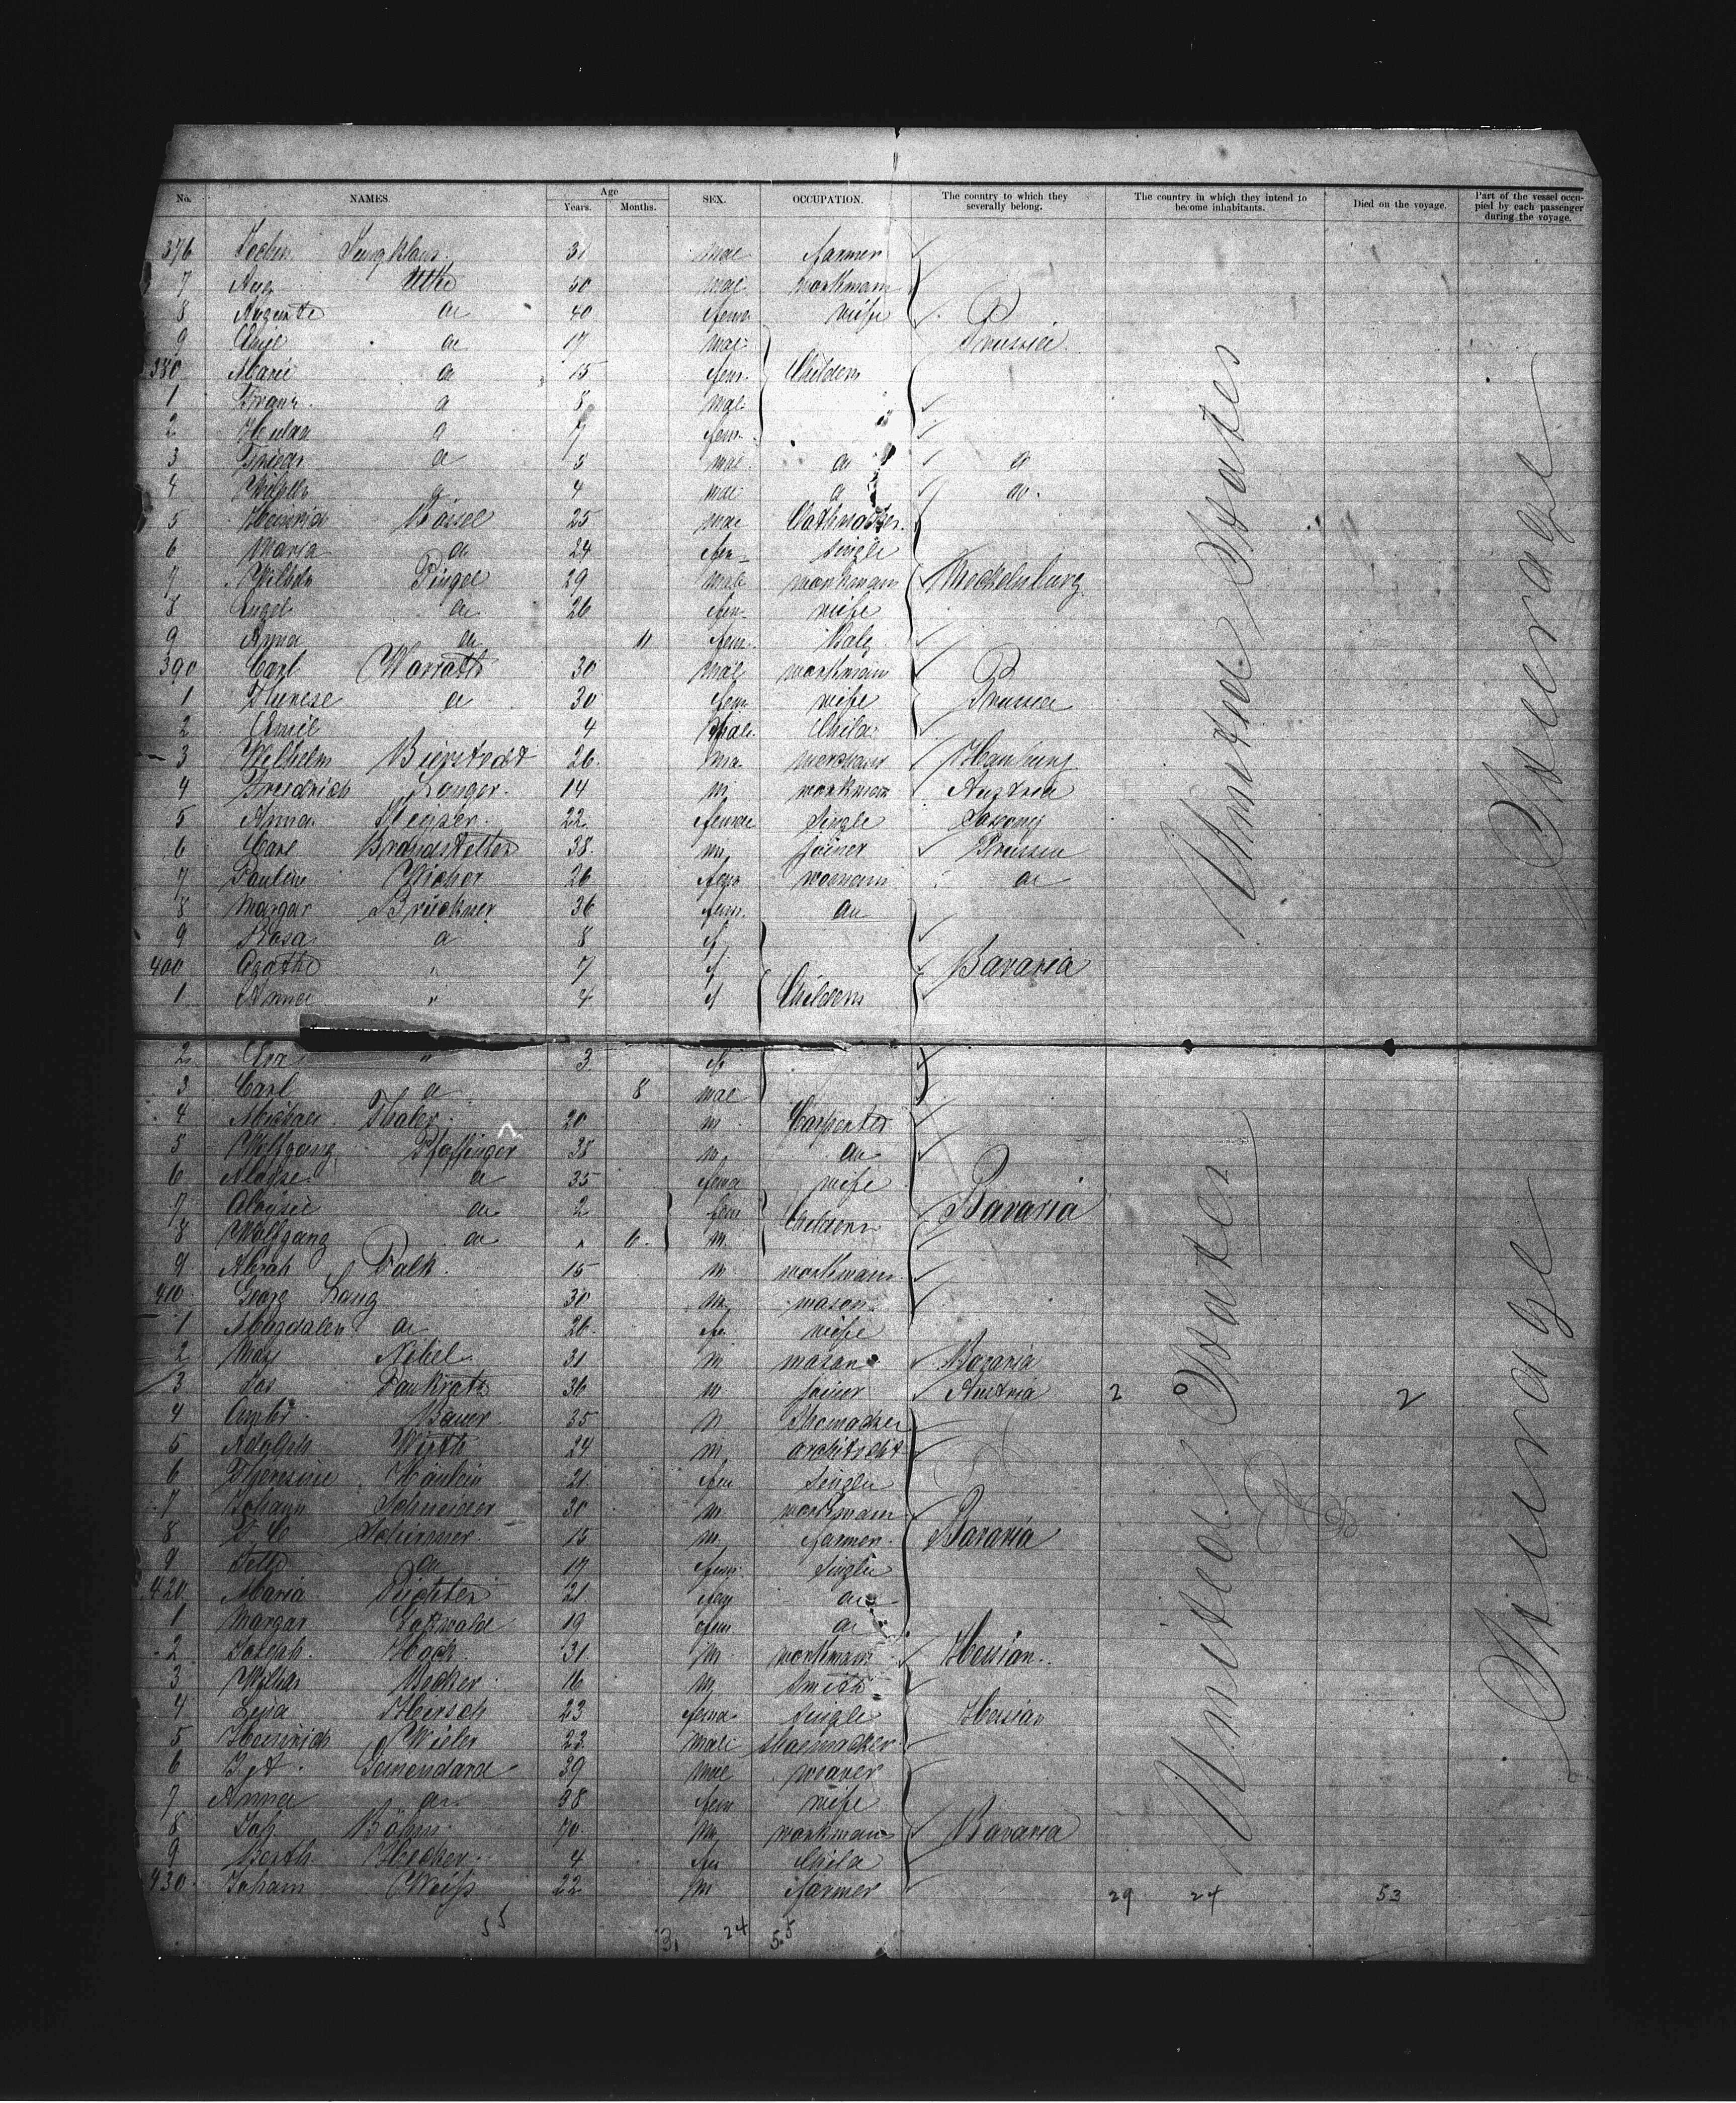 No. NAMES. Age Years. Months. SEX. OCCUPATION. The country to which they severally belong. The country in which they intend to become inhabitants. Died on the voyage. Part of the vessel occupied by each passenger during the voyage.
376 Jochen Jungklaus 31 mae farmer
7 Aug 50 mae workmann
8 Auguste do 40 fem wife
9 do 17 mae Prussia
380 Marie do 15 fem Childern
1 Franz do 8 mal
2 Hulda do 7 fem
3 Friedr do 5 mae do do
4 Wilhelm do 4 mae do do
5 Heinrich Bassel 25 mae
6 Maria do 24 fem single
7 Wilhelm Pingel 29 male workmann Mecklenburg
8 Engel do 26 fem wife
9 Anna do 11 fem Baby
390 Carl Warrath 30 mal workmann
1 Therese do 30 fem wife Prussia
2 Emil 4 male Child
3 Wilhelm Bierstedt 26 ma merchant Hamburg
4 Friedrich Langer 14 m workman Austria
5 Anna 22 female Single Saxony
6 Carl Brandstetter 38 m joiner Prussia
7 Pauline 26 fem do
8 Margar Brückner 36 fem do
9 Rosa do 8 f
400 Agathe " 7 f Bavaria
1 Anna " 4 f Childern
2 " 3 f
3 Carl do 8 mae
4 Michael Thaler 20 m Carpenter
5 Wolfgang Pfaffinger 38 m do
6 Aloyse do 35 fema wife
7 Aloysie do 2 fem Childern Bavaria
8 Wolfgang do " 6 m
9 Falk 15 m workmann
410 Georg Lang 30 m mason
1 Magdalen do 26 fe wife
2 Max Nebel 31 m mason Bavaria
3 Jos Pankratz 36 m joiner Austria 2 0 2
4 Bauer 35 m Shomacker
5 Adolph Wirth 24 m architekt
6 Theresine Hänlein 21 fem Single
7 Johann Schneider 30 m workmann
8 Schirmer 15 m farmer Bavaria
9 do 17 fem single
420 Maria Richter 21 fem do
1 Margar 19 fem do
2 Joseph Hoch 31 m workmann Hessian
3 Becker 16 m Smith
4 Lina Hirsch 23 fema Single Hessian
5 Heinrich Wieler 23 male Shoemacker
6 39 mae weaver
7 Anna do 38 fem wife
8 Joh Böhm 70 m workmann Bavaria
9 Berth 4 fem Child
430 Johann Weiss 22 m farmer
United States
United States
Steerage
Steerage
29 24 53
55 31 24 55